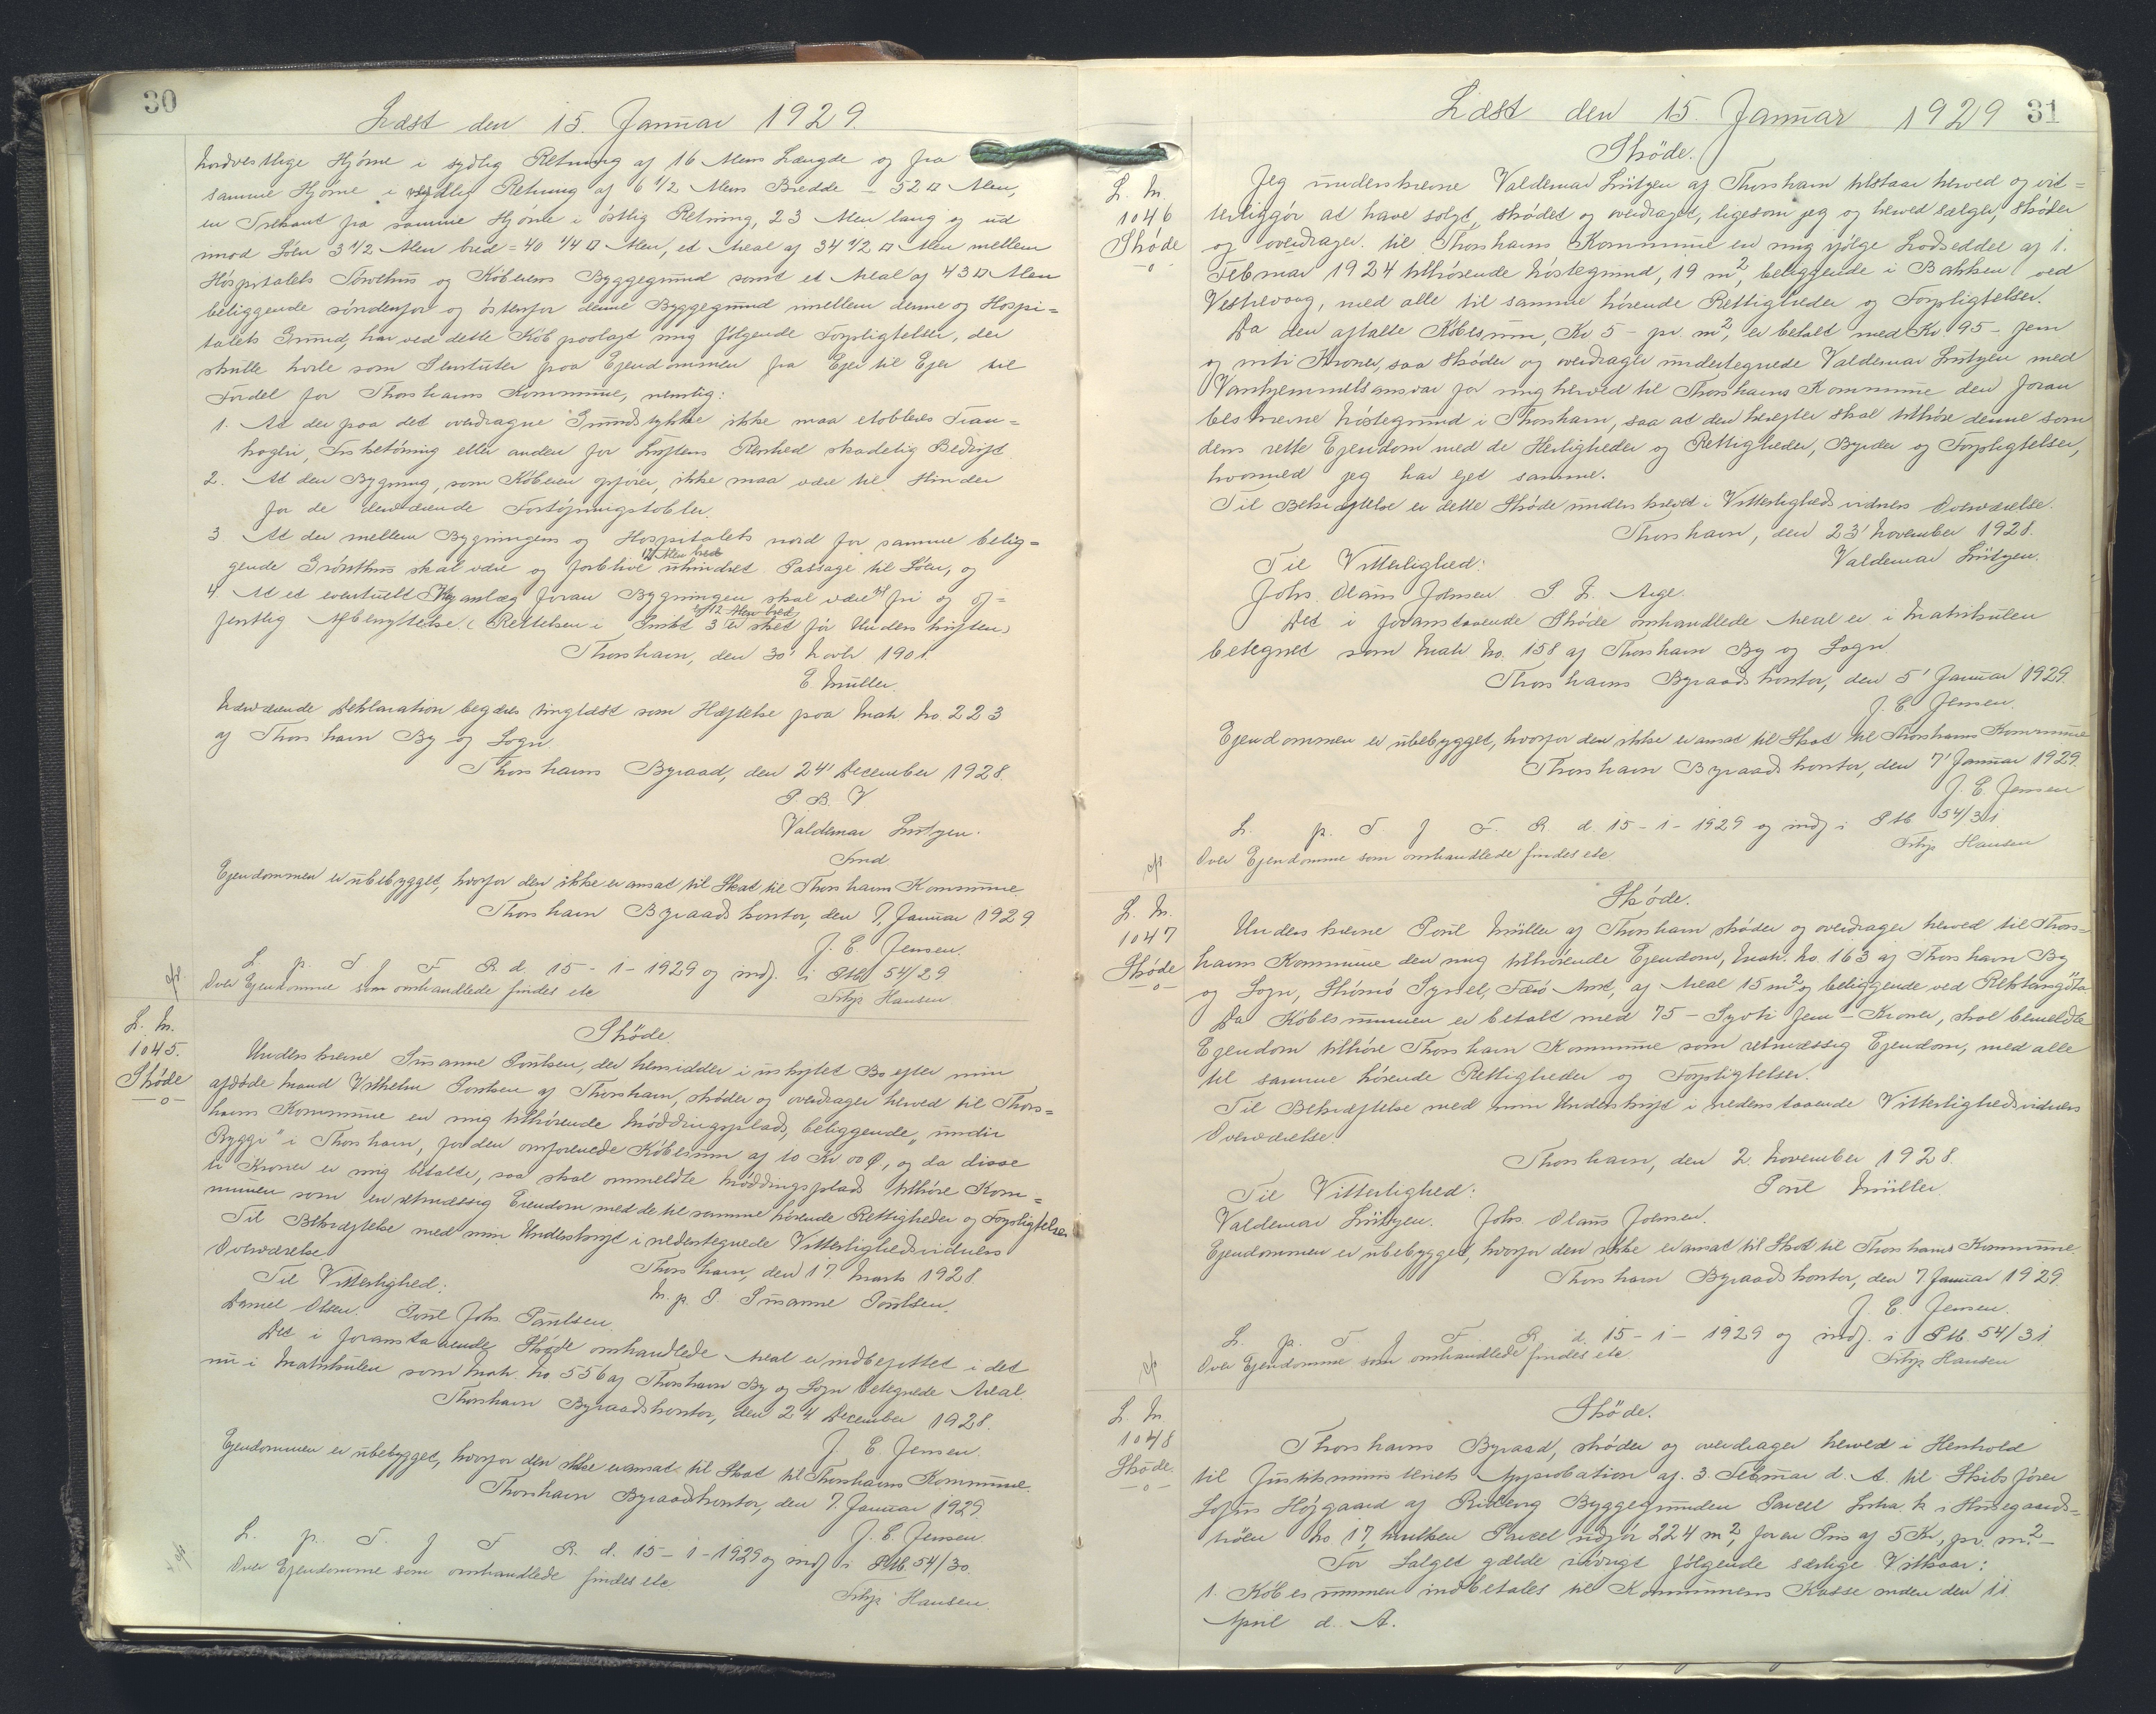 30
Læst den 15. Januar 1929.
nordvestlige Hjørne i sydlig Retning af 16 Alens Længde og fra
samme Hjørne i sydlig Retning af 6 1/2 Alens Bredde = 52 □ Alen,
en Trekant fra samme Hjørne i østlig Retning, 23 Alen lang og ud
imod Søen 3 1/2 Alen bred = 40 1/4 □ Alen, et Areal af 34 1/2 □ Alen mellem
Hospitalets Tørvehus og Køberens Byggegrund samt et Areal af 43 □ Alen
beliggende søndenfor og østenfor denne Byggegrund mellem denne og Hospi=
talets Grund, har ved dette Køb paalagt mig følgende Forpligtelser, der
skulle hvile som Servituter paa Ejendommen fra Ejer til Ejer til
Fordel for Thorshavns Kommune, nemlig:
1. At der paa det overdragne Grundstykke ikke maa etableres Tran=
kogeri, Fisketørring eller anden for Luftens Renhed skadelig Bedrift.
2. At den Bygning, som Køberen opfører, ikke maa være til Hinder
for de derværende Fortøjningstobler.
3. At der mellem Bygningens og Hospitalets nord for samme belig=
12 Alen bred
gende Grønthus skal være og forblive uhindret Passage til Søen, og
4. At et eventuelt Kajanlæg foran Bygningen skal være til fri og of=
ef 12 Alen bred
fentlig Afbenyttelse (Rettelsen i Punkt 3 er sket før Underskriften)
Thorshavn, den 30' Novbr 1901.
E. Müller.
Nærværende Deklaration begæres tinglæst som Hæftelse paa Matr. No. 223
af Thorshavn By og Sogn
Thorshavns Byraad, den 24' December 1928.
P. B. V.
Valdemar Lützen.
Fmd.
Ejendommen er ubebygget, hvorfor den ikke er ansat til Skat til Thorshavns Kommune.
Thorshavn Byraadskontor, den 7, Januar 1929
J. E. Jensen.
L. p. T. f F. R. d. 15-1-1929 og indf. i Ptb 54/29
Over Ejendomme som omhandlede findes etc
Filip Hansen
L. N.
1045.
Skøde
Skøde.
Underskrevne Susanne Poulsen, der hensidder i uskiftet Bo efter min
afdøde Mand Vilhelm Poulsen af Thorshavn, skøder og overdrager herved til Thors=
havns Kommune en mig tilhørende Møddingsplads, beliggende "undir
Ryggi" i Thorshavn, for den omforenede Købesum af 10 Kr 00 Ø, og da disse
ti Kroner er mig betalte, saa skal ommeldte Møddingsplads tilhøre Kom=
munen som en retmæssig Ejendom med de til samme hørende Rettigheder og Forpligtelser
Til Bekræftelse med min Underskrift i nedentegnede Vitterlighedsvidners
Overværelse
Thorshavn, den 17. Marts 1928.
Til Vitterlighed:
m. p. P. Susanne Poulsen.
Daniel Olsen. Poul Johs. Paulsen.
Det i foranstaaende Skøde omhandlede Areal er indbefattet i det
nu i Matrikulen som Matr. No. 556 af Thorshavn By og Sogn betegnede Areal
Thorshavn Byraadskontor, den 24 December 1928.
J. E. Jensen.
Ejendommen er ubebygget, hvorfor den ikke er ansat til Skat til Thorshavns Kommune.
Thorshavn Byraadskontor, den 7. Januar 1929.
J. E. Jensen
L. p. T. f F R. d. 15-1-1929 og indf i Ptb. 54/30.
Over Ejendomme som omhandlede findes etc
Filip Hansen.
Læst den 15. Januar 1929
31
L. N.
1046
Skøde
Skøde.
Jeg underskrevne Valdemar Lützen af Thorshavn tilstaar herved og vit=
terliggør at have solgt, skødet og overdraget, ligesom jeg og herved sælger, skøder
og overdrager til Thorshavns Kommune en mig ifølge Lodseddel af 1.
Februar 1924 tilhørende Nøstegrund, 19 m², beliggende i Bakken ved
Vestrevaag, med alle til samme hørende Rettigheder og Forpligtelser.
Da den aftalte Købesum, Kr 5 - pr. m², er betalt med Kr. 95 - fem
og niti Kroner, saa skøder og overdrager undertegnede Valdemar Lützen med
Vanhjemmelsansvar for mig herved til Thorshavns Kommune den foran
beskrevne Nøstegrund i Thorshavn, saa at den herefter skal tilhøre denne som
dens rette Ejendom med de Herligheder og Rettigheder, Byrder og Forpligtelser,
hvormed jeg har ejet samme.
Til Bekræftelse er dette Skøde underskrevet i Vitterlighedsvidners Overværelse.
Thorshavn, den 23' November 1928.
Til Vitterlighed:
Valdemar Lützen.
Johs. Olaus Joensen. P. L. Aage.
Det i foranstaaende Skøde omhandlede Areal er i Matrikulen
betegnet som Matr No. 158 af Thorshavn By og Sogn
Thorshavns Byraadskontor, den 5' Januar 1929.
J. E. Jensen.
Ejendommen er ubebygget, hvorfor den ikke er ansat til Skat til Thorshavns Kommune
Thorshavn Byraadskontor, den 7' Januar 1929.
J. E. Jensen
L. p. T f F. R. d. 15-1-1929 og indf i Ptb 54/31
Over Ejendomme som omhandlede findes etc
Filip Hansen
L. N.
1047
Skøde
Skøde.
Underskrevne Poul Müller af Thorshavn skøder og overdrager herved til Thors=
havns Kommune den mig tilhørende Ejendom, Matr. No. 163 af Thorshavn By
og Sogn, Strømø Syssel, Færø Amt, af Areal 15 m² og beliggende ved
Da Købesummen er betalt med 75 - Syvti fem - Kroner, skal bemeldte
Ejendom tilhøre Thorshavn Kommune som retmæssig Ejendom, med alle
til samme hørende Rettigheder og Forpligtelser.
Til Bekræftelse med min Underskrift i nedenstaaende Vitterlighedsvidners
Overværelse.
Thorshavn, den 2. November 1928.
Til Vitterlighed:
Poul Müller.
Valdemar Lützen. Johs. Olaus Joensen.
Ejendommen er ubebygget, hvorfor den ikke er ansat til Skat til Thorshavns Kommune.
Thorshavn Byraadskontor, den 7 Januar 1929.
J. E. Jensen.
L. p. T. f F. R. d. 15-1-1929 og indf. i Ptb 54/31
Over Ejendomme som omhandlede findes etc
Filip Hansen
L. N.
1048
Skøde.
Skøde.
Thorshavns Byraad, skøder og overdrager herved i Henhold
til Justitsministeriets Approbation af. 3. Februar d. A. til Skibsfører
Sofus Højgaard af Byggegrunden Parcel Litra k i Husegaards=
trøen No. 17, hvilken Parcel udgør 224 m², for en Pris af 5 Kr, pr. m². -
For Salget gælde iøvrigt følgende særlige Vilkaar:
1. Købesummen indbetales til Kommunens Kasse inden den 11
April d. A.